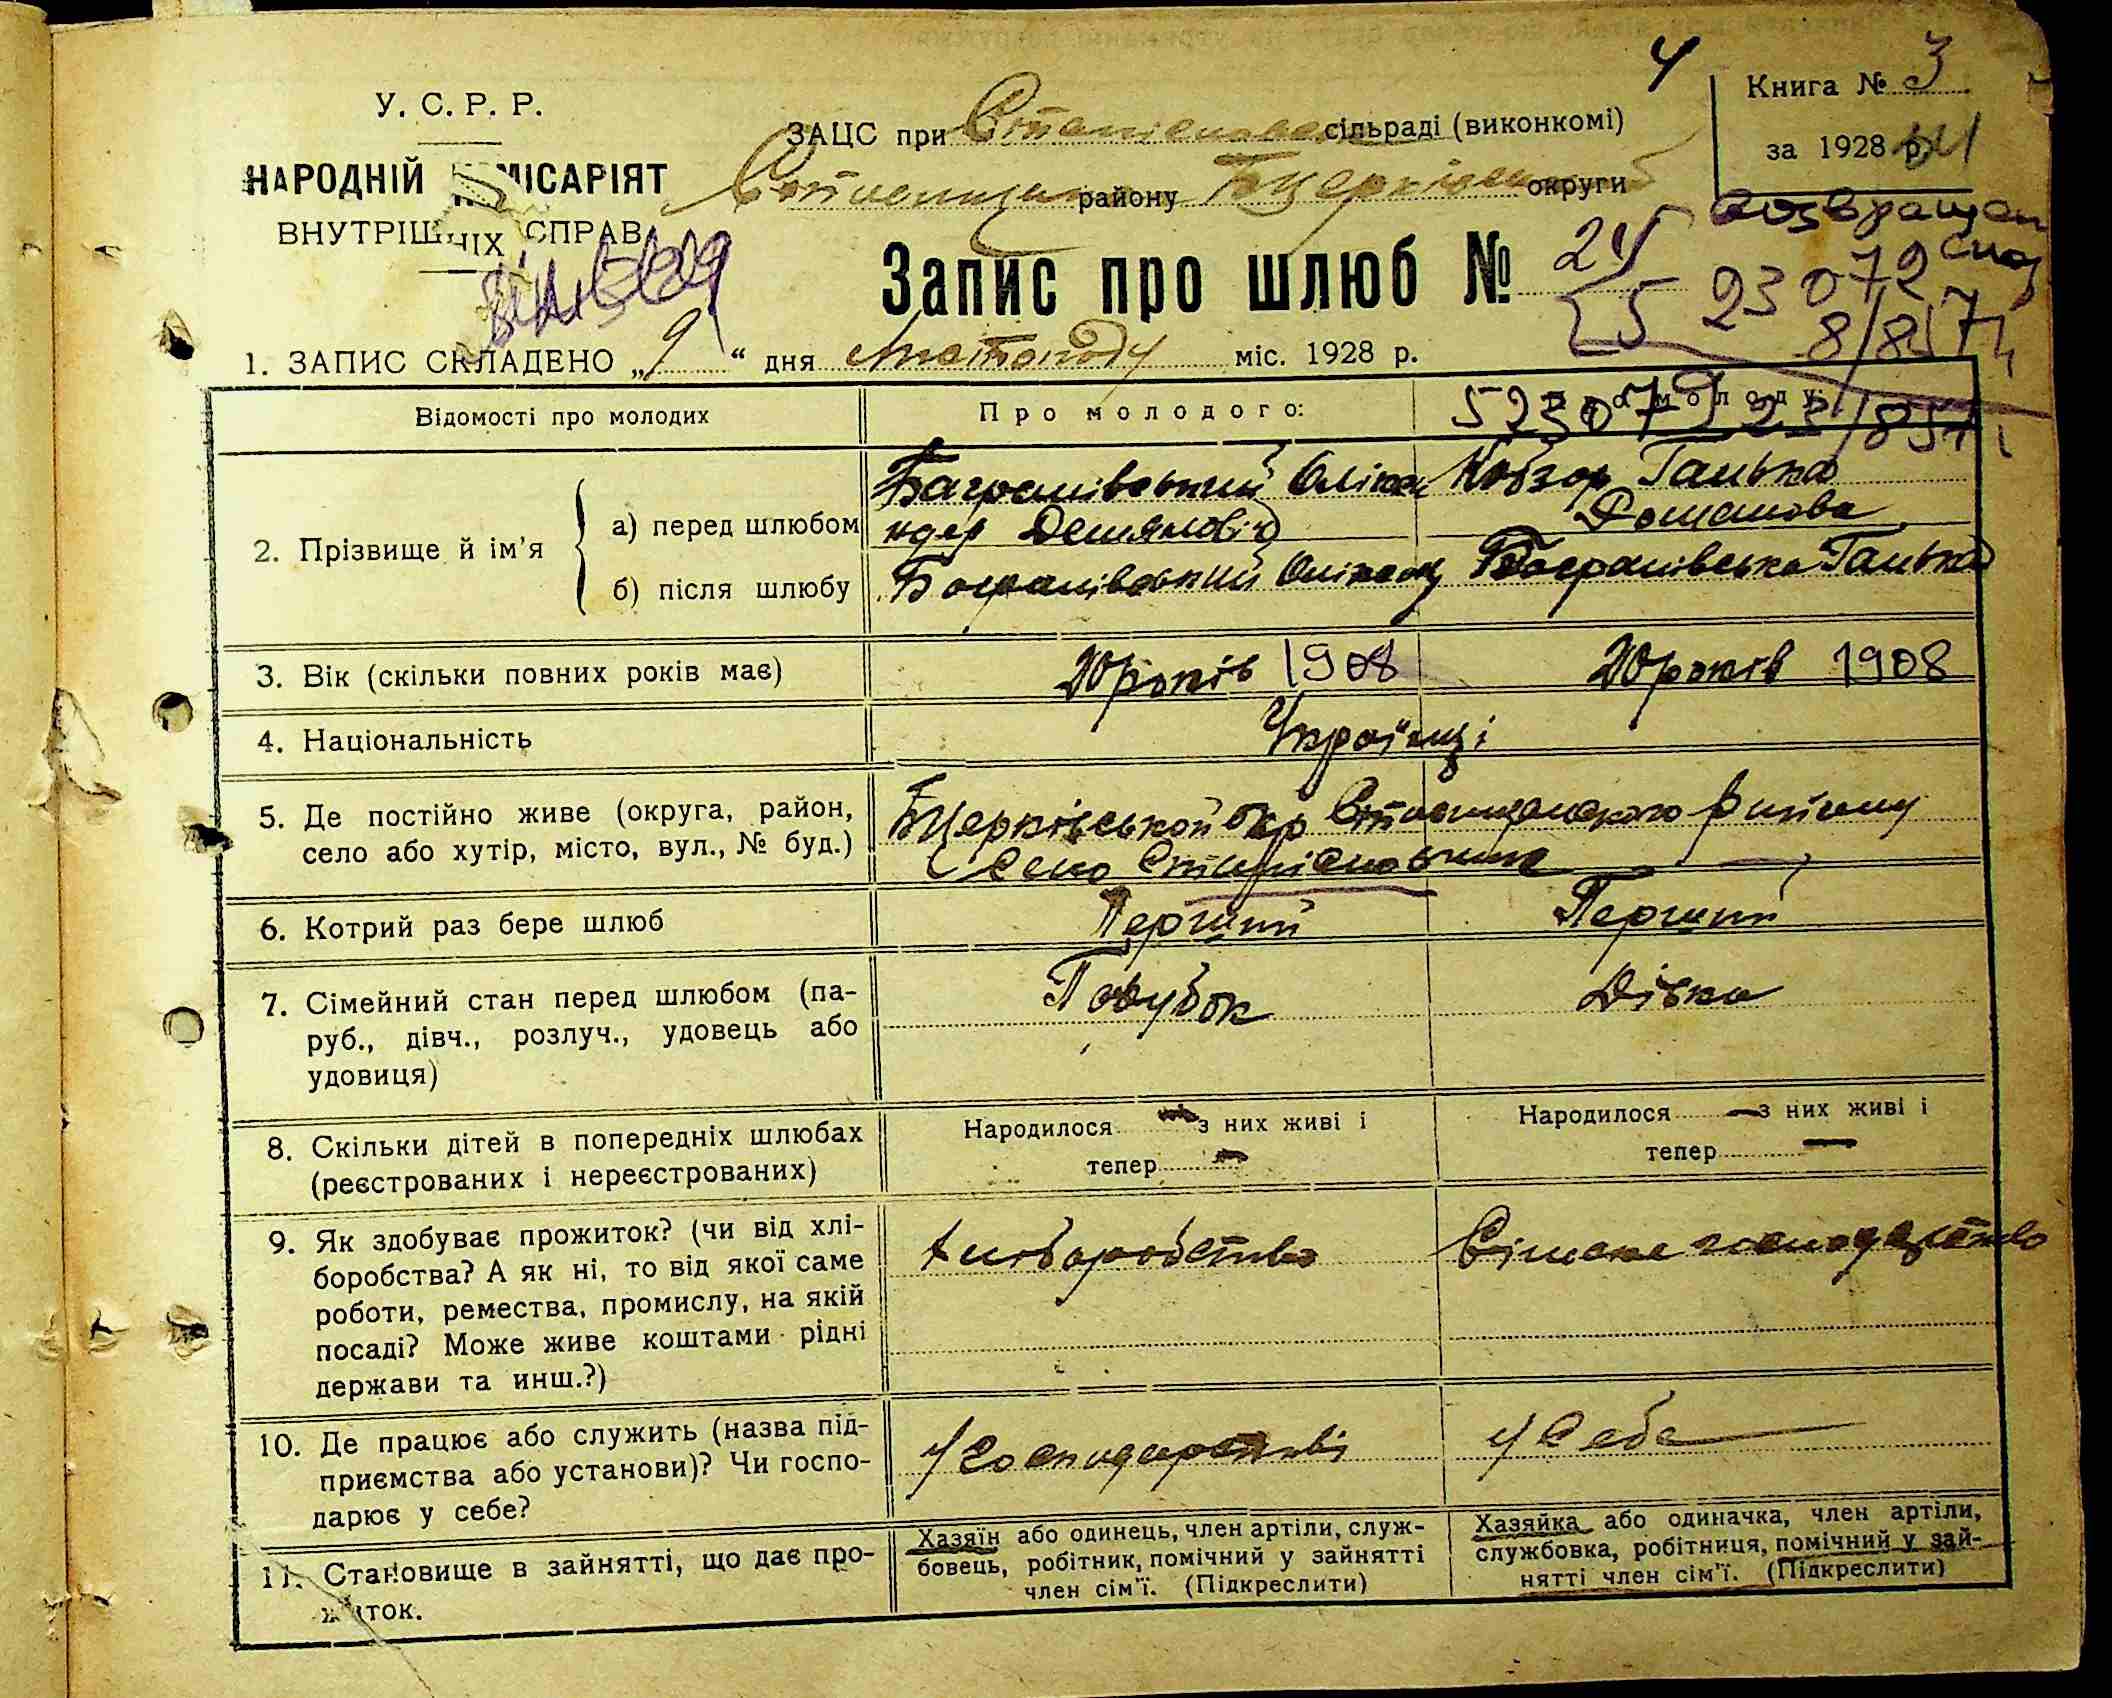 4
Книга № 3
У. С. Р. Р.
ЗАЦС при сільраді (виконкомі)
за 1928 р.
НАРОДНІЙ КОМІСАРІЯТ
району Бцерківськ округи
ВНУТРІШНІХ СПРАВ
возвращен
Запис про шлюб № 24
5 23072
8/8 57
1. ЗАПИС СКЛАДЕНО „9“ дня листопаду міс. 1928 р.
Відомості про молодих
Про молодого:
Про молоду:
523079 23/8 57
2. Прізвище й ім'я
а) перед шлюбом
б) після шлюбу
Багранівський Олікса Кобзар Ганька
ндер Демянович
Багранівський Багранівська Ганька
3. Вік (скільки повних років має)
20 років 1908
20 років 1908
4. Національність
Українці
5. Де постійно живе (округа, район,
село або хутір, місто, вул., № буд.)
Бцерківської окр району
село
6. Котрий раз бере шлюб
Перший
Перший
7. Сімейний стан перед шлюбом (па-
руб., дівч., розлуч., удовець або
удовиця)
Парубок
Дівка
8. Скільки дітей в попередніх шлюбах
(реєстрованих і нереєстрованих)
Народилося — з них живі і
тепер —
Народилося — з них живі і
тепер —
9. Як здобуває прожиток? (чи від хлі-
боробства? А як ні, то від якої саме
роботи, ремества, промислу, на якій
посаді? Може живе коштами рідні
держави та инш.?)
хліборобство
Сільске господарство
10. Де працює або служить (назва під-
приємства або установи)? Чи госпо-
дарює у себе?
У господарстві
У себе
11. Становище в зайнятті, що дає про-
житок.
Хазяїн або одинець, член артіли, служ-
бовець, робітник, помічний у зайнятті
член сім'ї. (Підкреслити)
Хазяйка або одиначка, член артіли,
службовка, робітниця, помічний у зай-
нятті член сім'ї. (Підкреслити)